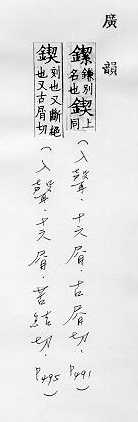 廣韻
鍥鎌別名也鍥上同
(入聲.十六屑.古屑切.P491)
鍥刻也又斷絕也又古屑切
(入聲.十六屑.苦結切.P495)